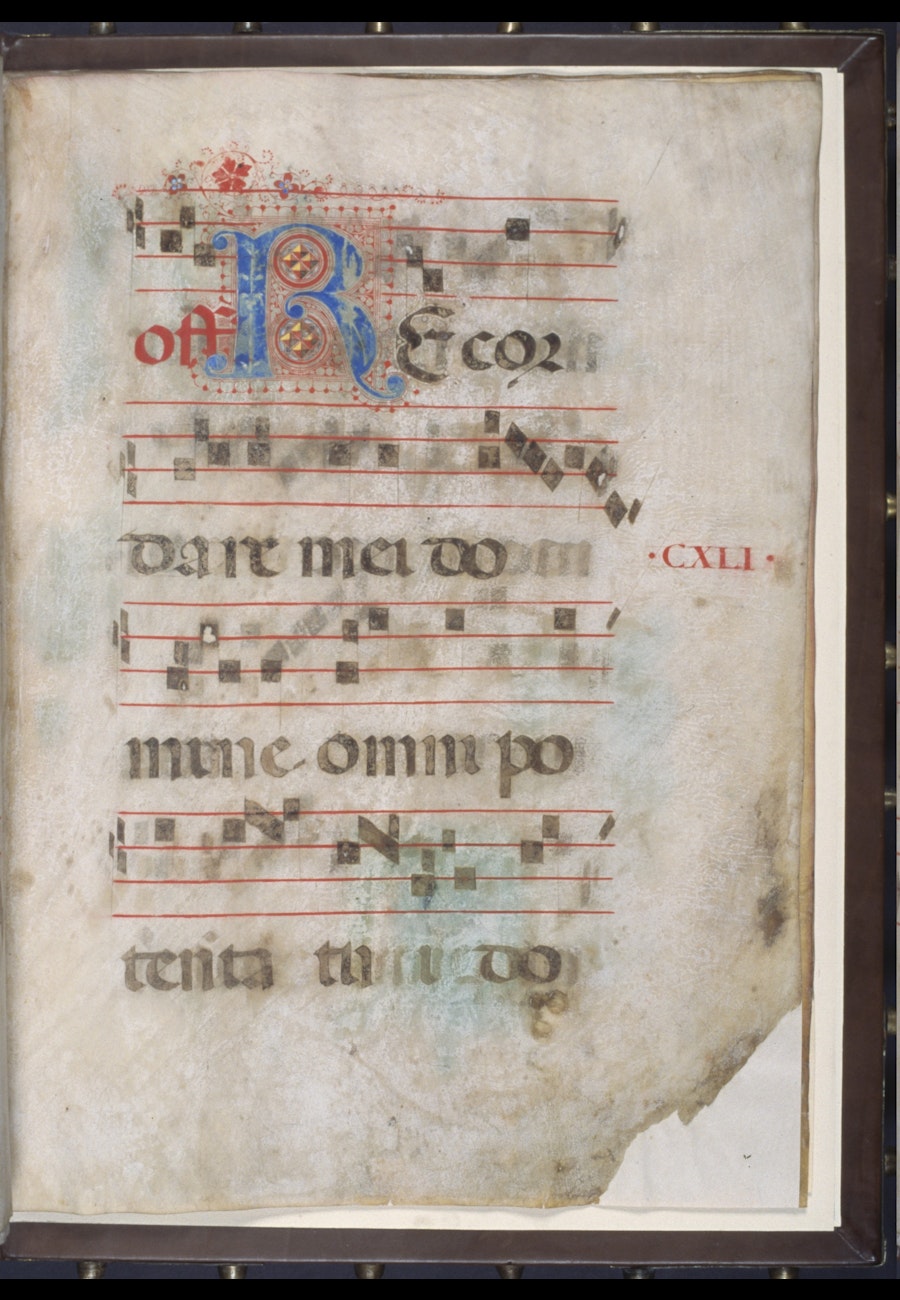 off REcor
dare mei do
·CXLI·
mine omni po
tenta tu
do